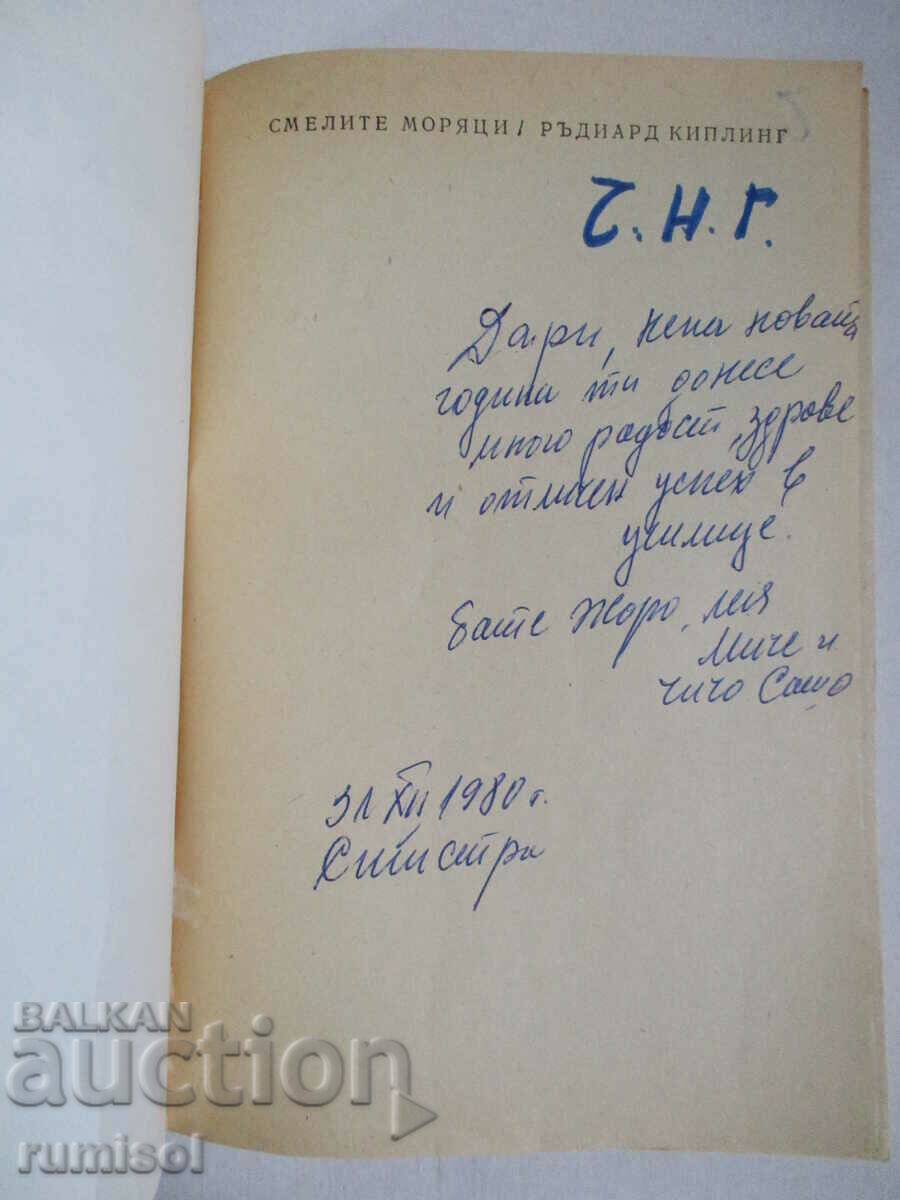 СМЕЛИТЕ МОРЯЦИ / РЪДИАРД КИПЛИНГ
Ч.Н.Г.
Дари, нека новата
година ти донесе
много радост, здраве
и отличен успех в
училище.
Бате Жоро, леля
Миче и
чичо Сашо
31 XII 1980 г.
Силистра
BALKAN
auction
rumisol